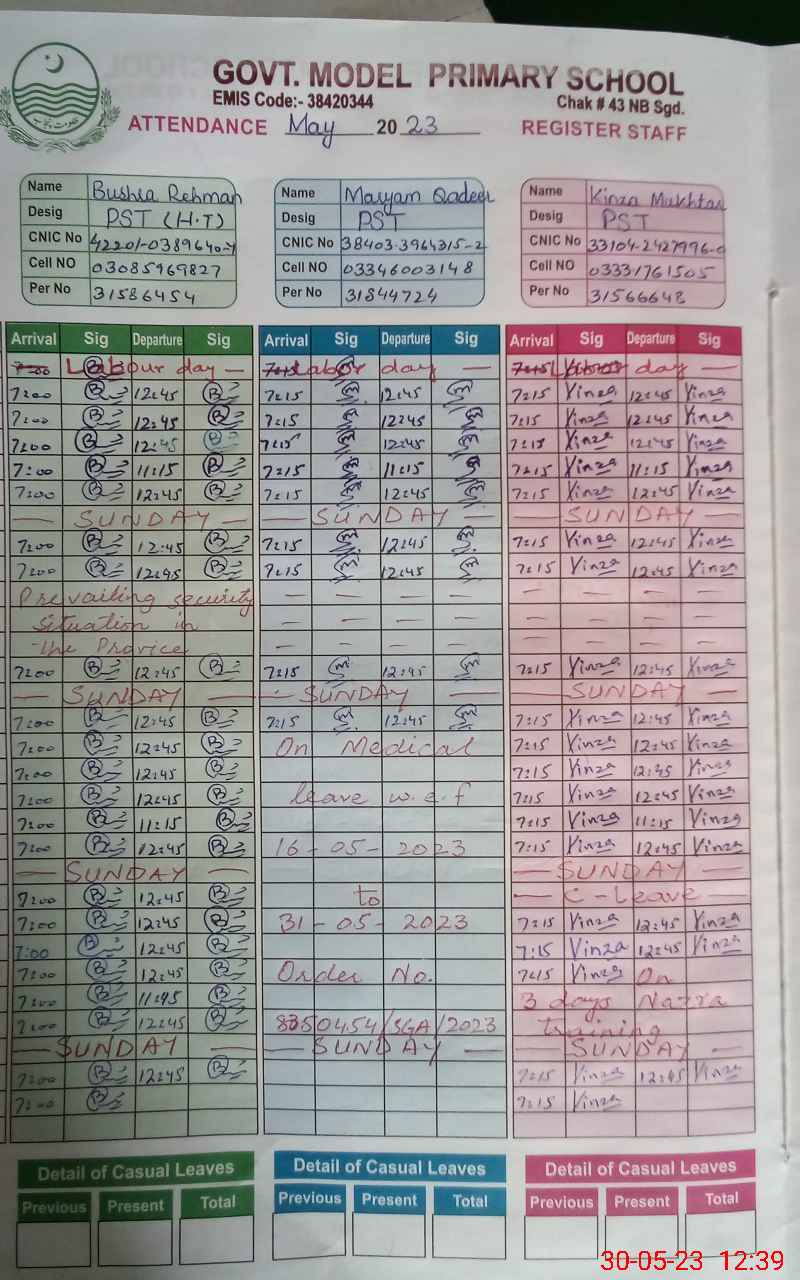 GOVT. MODEL PRIMARY SCHOOL
EMIS Code:- 38420344 Chak # 43 NB Sgd.
ATTENDANCE May 2023 REGISTER STAFF
Name Bushra Rehman Name Maryam Qadeer Name Kinza Mukhtar
Desig PST (H.T) Desig PST Desig PST
CNIC No 42201-0389640-4 CNIC No 38403-3964315-2 CNIC No 33104-2427996-0
Cell NO 03085969827 Cell NO 03346003148 Cell NO 03331761505
Per No 31586454 Per No 31844724 Per No 31566648
Arrival Sig Departure Sig Arrival Sig Departure Sig Arrival Sig Departure Sig
7:00 Labour day — 7:15 Labor day — 7:15 Labour day —
7:00 B 12:45 B 7:15 12:45 7:15 Kinza 12:45 Kinza
7:00 B 12:45 B 7:15 12:45 7:15 Kinza 12:45 Kinza
7:00 B 12:45 B 7:15 12:45 7:15 Kinza 12:45 Kinza
7:00 B 11:15 B 7:15 11:15 7:15 Kinza 11:15 Kinza
7:00 B 12:45 B 7:15 12:45 7:15 Kinza 12:45 Kinza
— SUNDAY — — SUNDAY — — SUNDAY —
7:00 B 12:45 B 7:15 12:45 7:15 Kinza 12:45 Kinza
7:00 B 12:45 B 7:15 12:45 7:15 Kinza 12:45 Kinza
Prevailing security — — — — — — — —
situation in — — — — — — — —
the Provice — — — — — — — —
7:00 B 12:45 B 7:15 12:45 7:15 Kinza 12:45 Kinza
— SUNDAY — — SUNDAY — — SUNDAY —
7:00 B 12:45 B 7:15 12:45 7:15 Kinza 12:45 Kinza
7:00 B 12:45 B On Medical 7:15 Kinza 12:45 Kinza
7:00 B 12:45 B 7:15 Kinza 12:45 Kinza
7:00 B 12:45 B leave w.e.f 7:15 Kinza 12:45 Kinza
7:00 B 11:15 B 7:15 Kinza 11:15 Kinza
7:00 B 12:45 B 16-05-2023 7:15 Kinza 12:45 Kinza
— SUNDAY — — SUNDAY —
7:00 B 12:45 B to — C-Leave —
7:00 B 12:45 B 31-05-2023 7:15 Kinza 12:45 Kinza
7:00 B 12:45 B 7:15 Kinza 12:45 Kinza
7:00 B 12:45 B Order No. 7:15 Kinza On
7:00 B 11:45 B 3 days Nazra
7:00 B 12:45 B 8350454/SGA/2023 training
— SUNDAY — — SUNDAY — — SUNDAY —
7:00 B 12:45 B 7:15 Kinza 12:45 Kinza
7:00 B 7:15 Kinza
Detail of Casual Leaves Detail of Casual Leaves Detail of Casual Leaves
Previous Present Total Previous Present Total Previous Present Total
30-05-23 12:39